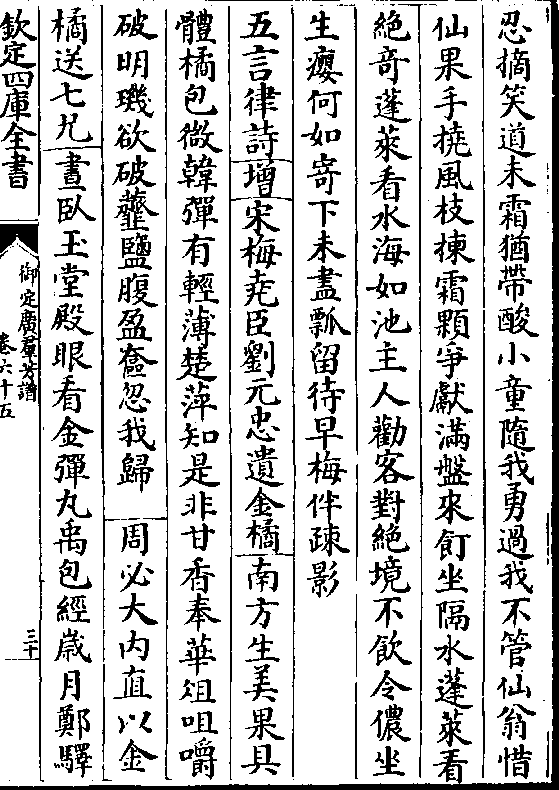 忍摘笑道未霜猶帶酸小童隨我勇過我不管仙翁惜
仙果手撓風枝揀霜顆爭獻滿盤來飣坐隔水蓬萊看
絕竒蓬萊看水海如池主人勸客對絕境不飲令儂坐
生癭何如寄下未盡瓢留待早梅伴疎影
五言律詩增宋梅堯臣劉元忠遺金橘南方生美果具
體橘包微韓彈有輕薄楚萍知是非甘香奉華俎咀嚼
破明璣欲破虀鹽腹盈奩忽我歸 周必大内直以金
橘送七兄晝臥玉堂殿眼看金彈丸禹包經歲月鄭驛
欽定四庫全書
御定廣羣芳譜
卷六十五
三十